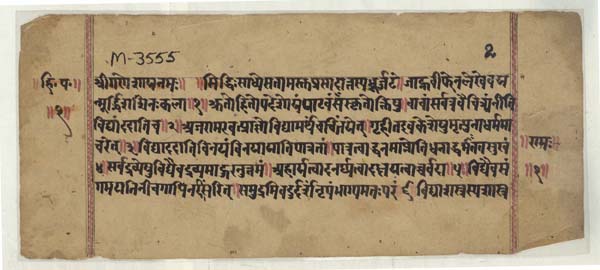 M-3555
2
हि॰ प॰
१
श्रीगणेशाय नमः ॥ सिद्धिः साध्ये सतामस्तु प्रसादात्तस्य धूर्जटेः ॥ जाह्नवीफेनलेखेव य
न्मूर्द्ध्नि शशिनः कला ॥१॥ श्रुतो हितोपदेशोयं पाटवं संस्कृतोक्तिषु ॥ वाचां सर्वत्र वैचित्र्यं नीति
विद्यां ददाति च ॥२॥ अजरामरवत्प्राज्ञो विद्यामर्थं च चिंतयेत् ॥ गृहीत इव केशेषु मृत्युना धर्ममा
चरेत् ॥३॥ विद्या ददाति विनयं विनयाद्याति पात्रतां ॥ पात्रत्वाद्धनमाप्नोति धनाद्धर्मं ततः सुखं
॥४॥ सर्वद्रव्येषु विद्यैव द्रव्यमाहुरनुत्तमं ॥ अहार्यत्वादनर्घ्यत्वादक्षयत्वाच्च सर्वदा ॥५॥ विद्यैव सं
गमयति नीचगापि नरं सरित् ॥ समुद्रमिव दुर्द्धर्षं नृपं भाग्यमतः परं ॥६॥ विद्या शस्त्रस्य शास्त्रस्य
रामः
१